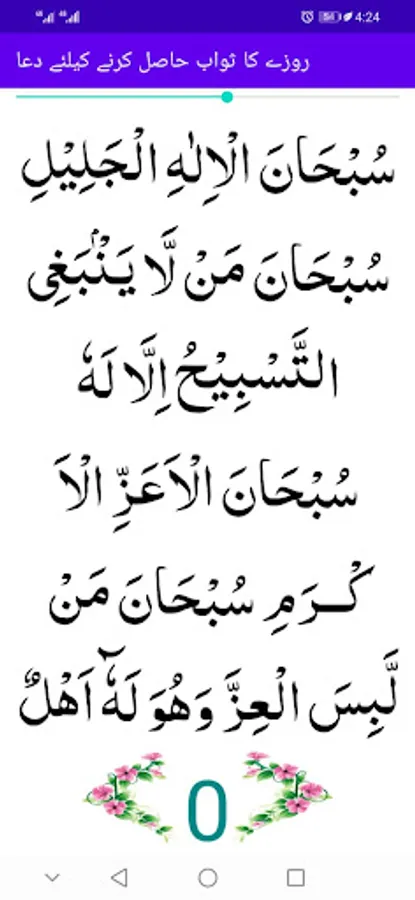 4:24
روزے کا ثواب حاصل کرنے کیلئے دعا
سُبْحَانَ الْاِلٰهِ الْجَلِيْلِ
سُبْحَانَ مَنْ لَّا يَنْۢبَغِى
التَّسْبِيْحُ اِلَّا لَهٗ
سُبْحَانَ الْاَعَزِّ الْاَ
كْـــرَمِ سُبْحَانَ مَنْ
لَّبِسَ الْعِزَّ وَهُوَ لَهٗۤ اَهْلٌ
0